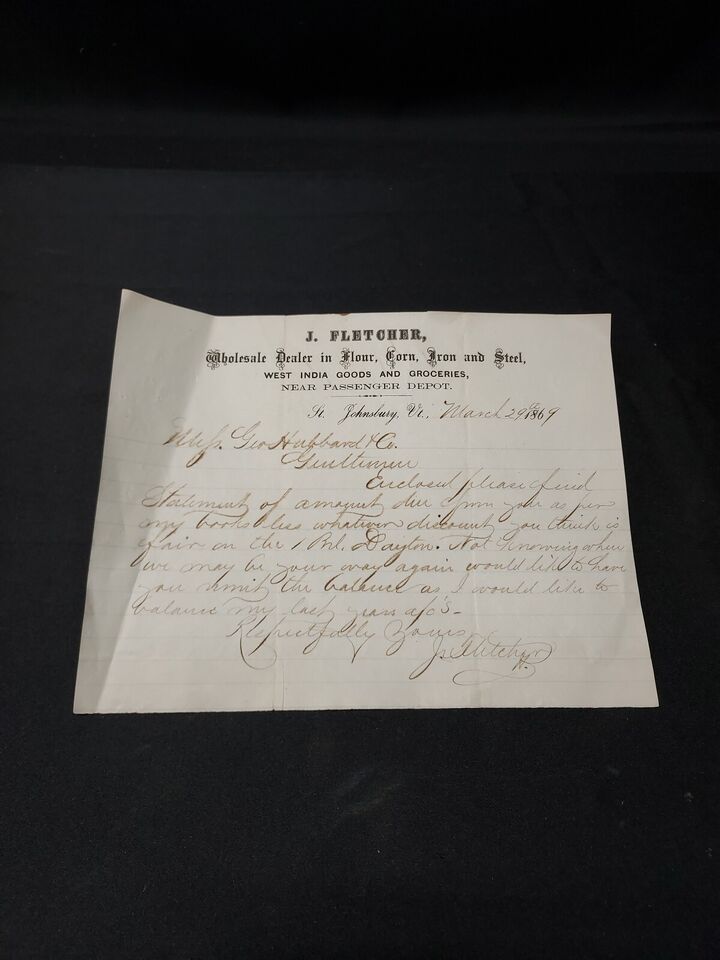 J. FLETCHER,
Wholesale Dealer in Flour, Corn, Iron and Steel,
WEST INDIA GOODS AND GROCERIES,
NEAR PASSENGER DEPOT.
St. Johnsbury, Vt., March 29th 1869
Mess. Geo Hubbard & Co.
Gentlemen
Enclosed please find
Statement of amount due from you as per
my books less whatever discount you think is
fair on the 1 Brl. Dayton. Not knowing when
we may be your way again would like to have
you remit the balance as I would like to
balance my last years a/c's-
Respectfully Yours
J. Fletcher